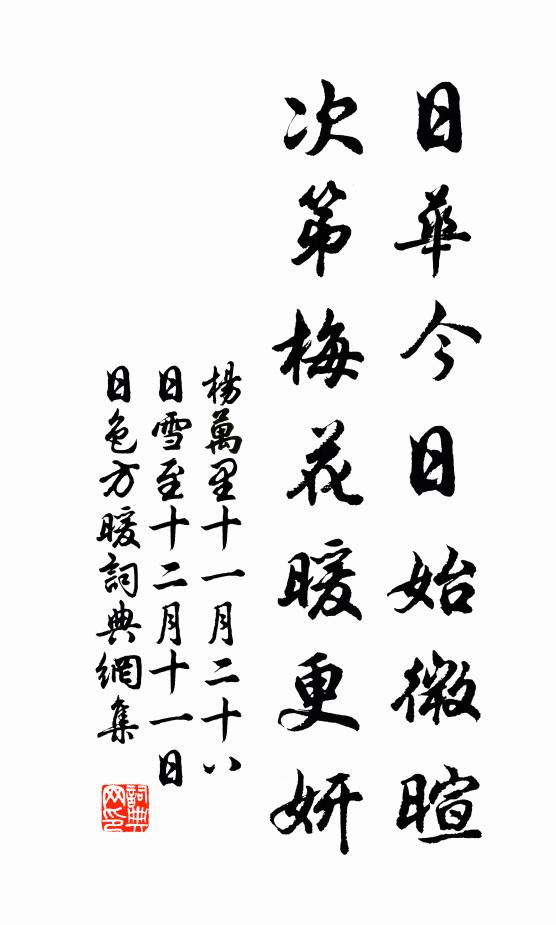 日華今日始微暄
次第梅花暖更妍
楊萬里十一月二十八
日雪至十二月十一日
日色方暖詞典網集
詞典
网印